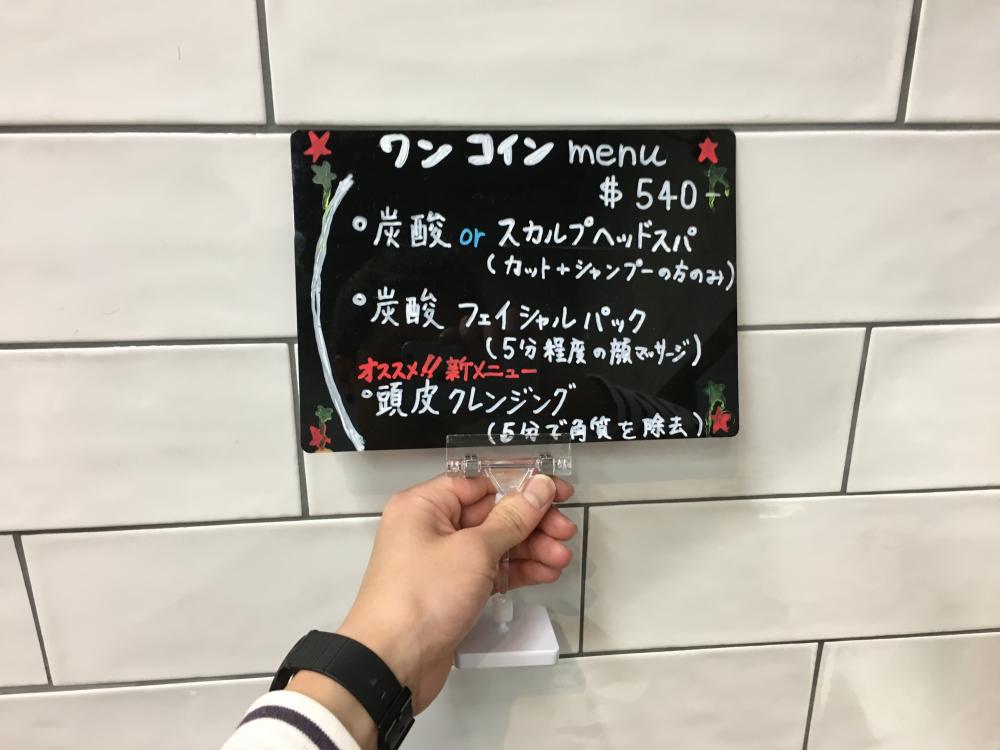 ワンコイン menu
$ 540-
○炭酸 or スカルプヘッドスパ
(カット+シャンプーの方のみ)
○炭酸 フェイシャルパック
(5分程度の顔マッサージ)
オススメ!! 新メニュー
○頭皮クレンジング
(5分で角質を除去)